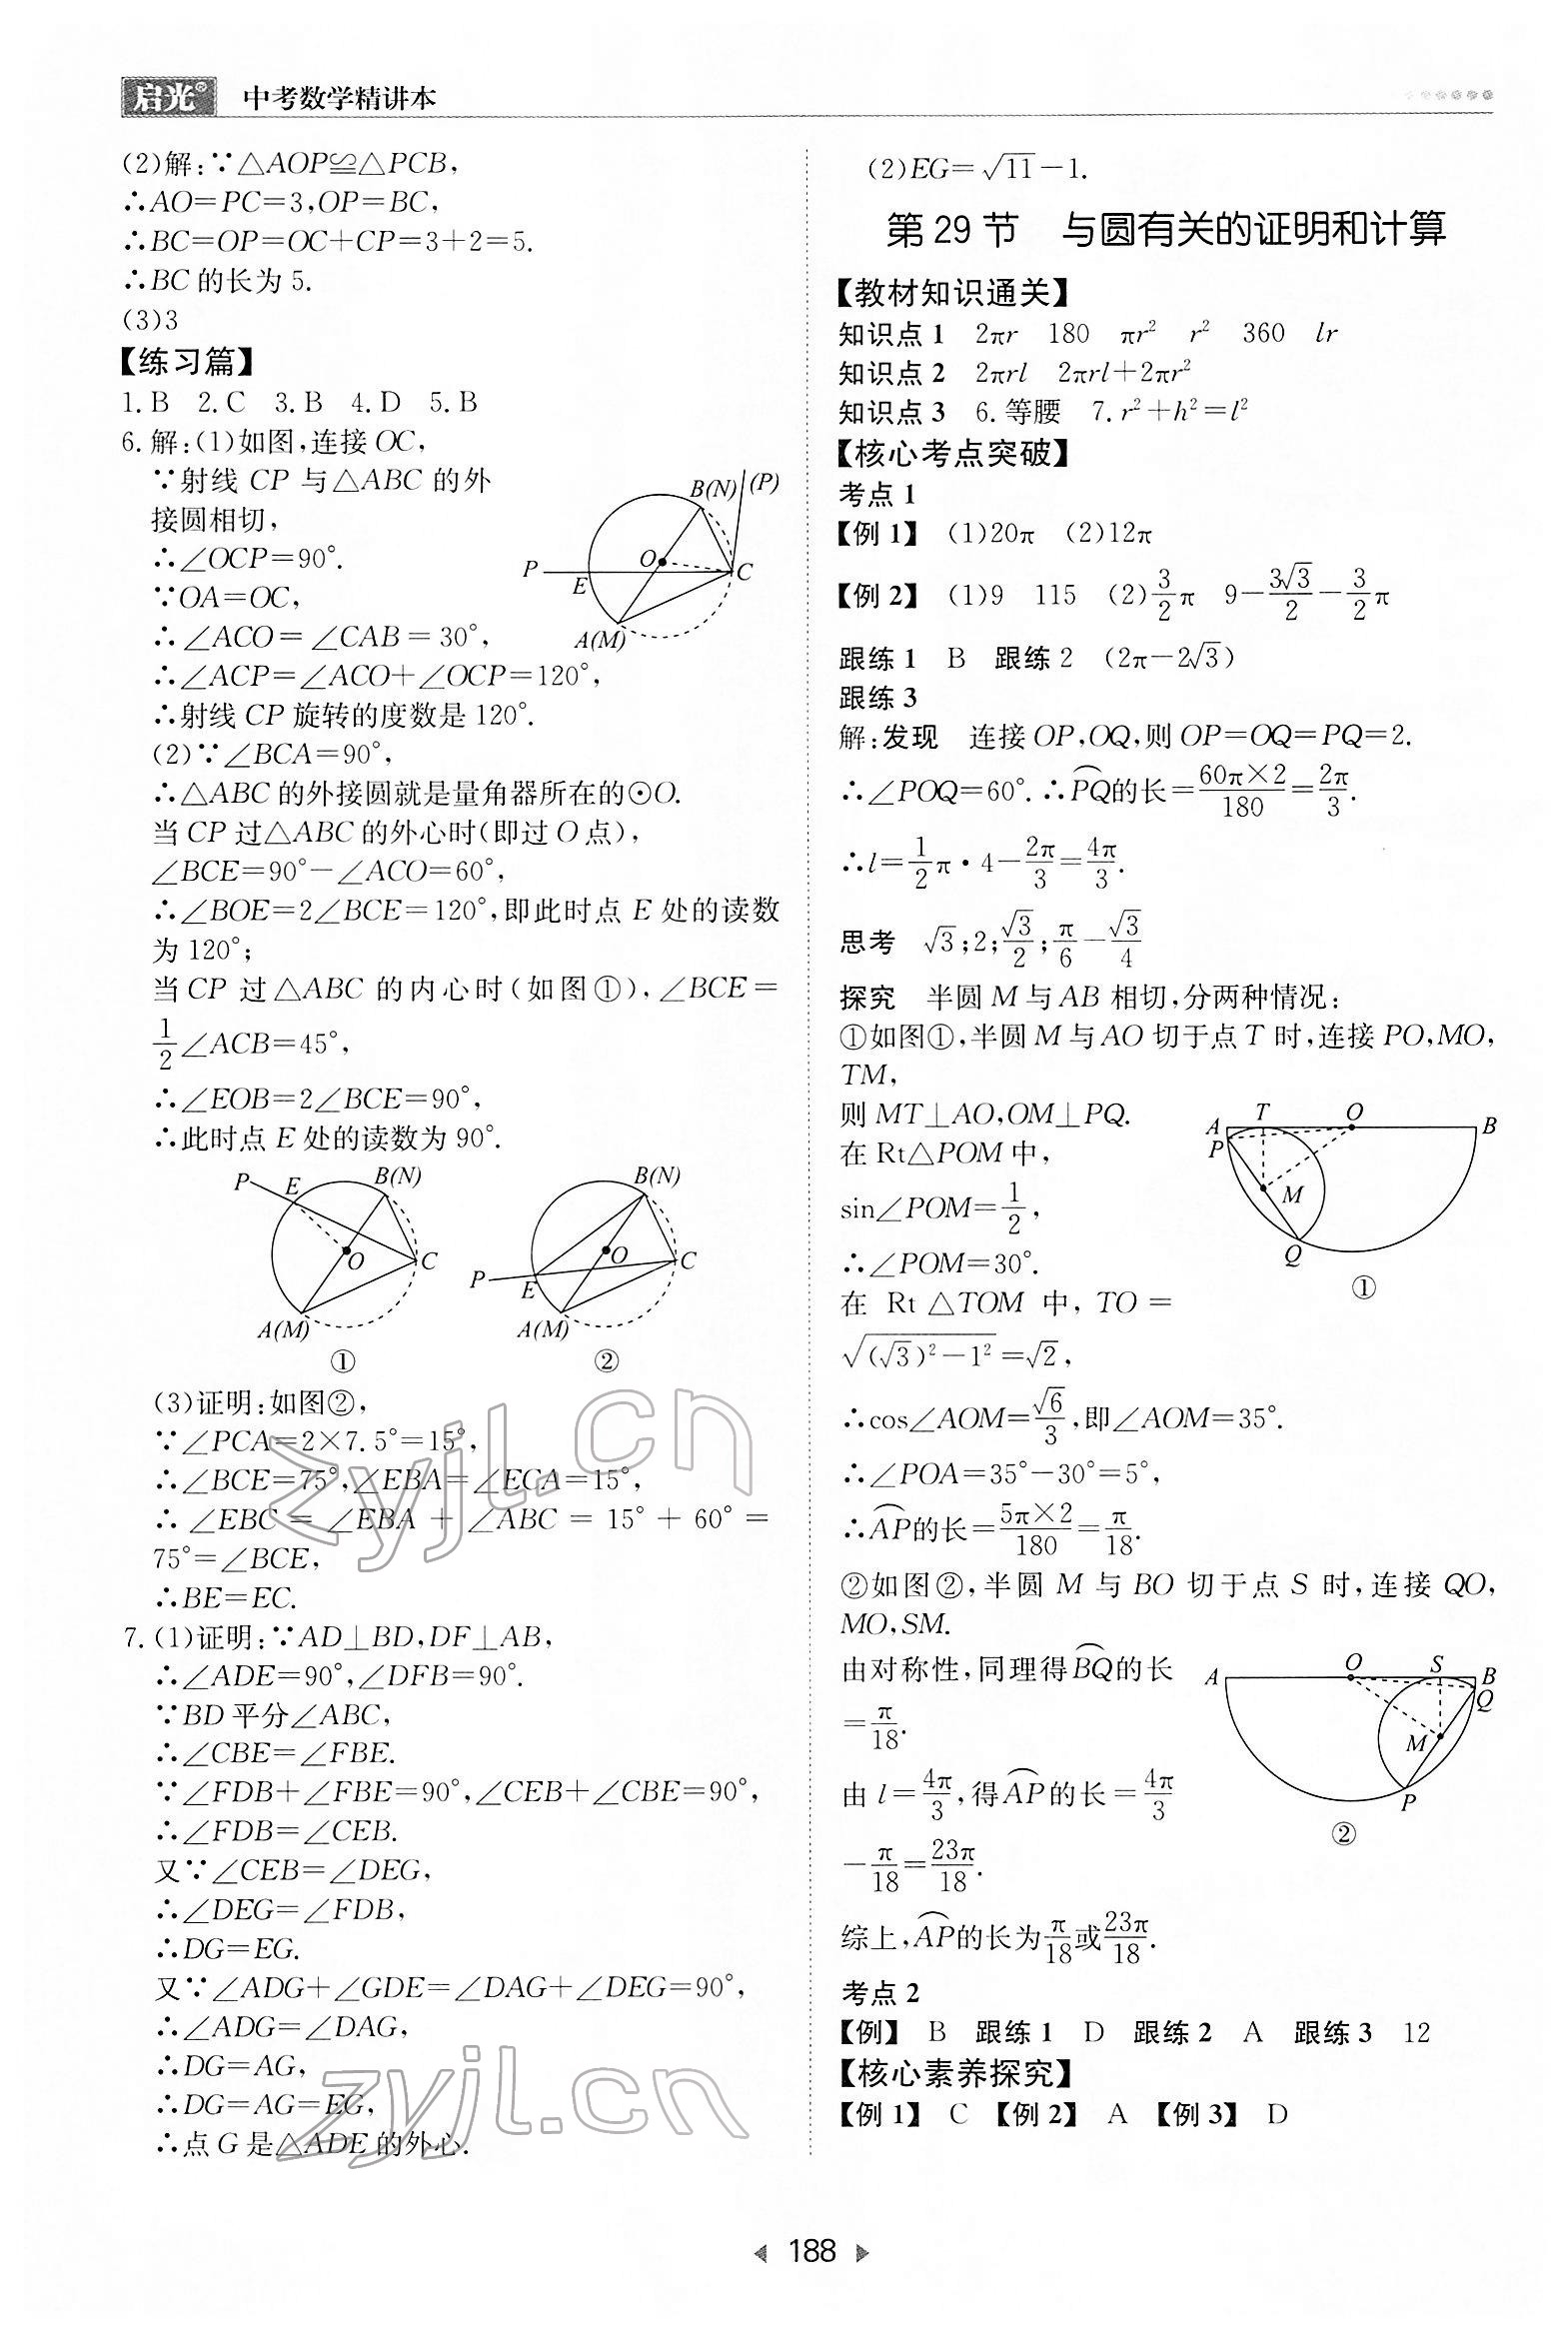 启光® 中考数学精讲本
(2)解:∵△AOP≌△PCB,
∴AO=PC=3,OP=BC,
∴BC=OP=OC+CP=3+2=5.
∴BC的长为5.
(3)3
【练习篇】
1.B 2.C 3.B 4.D 5.B
6.解:(1)如图,连接OC,
∵射线 CP 与△ABC 的外
接圆相切,
∴∠OCP=90°.
∵OA=OC,
∴∠ACO=∠CAB=30°,
∴∠ACP=∠ACO+∠OCP=120°,
∴射线CP旋转的度数是120°.
B(N) (P)
O
P E C
A(M)
(2)∵∠BCA=90°,
∴△ABC的外接圆就是量角器所在的⊙O.
当CP过△ABC的外心时(即过O点),
∠BCE=90°-∠ACO=60°,
∴∠BOE=2∠BCE=120°,即此时点E处的读数
为120°;
当CP过△ABC的内心时(如图①),∠BCE=
1/2∠ACB=45°,
∴∠EOB=2∠BCE=90°,
∴此时点E处的读数为90°.
P E B(N) O C A(M) ①
B(N) O C P E A(M) ②
(3)证明:如图②,
∵∠PCA=2×7.5°=15°,
∴∠BCE=75°,∠EBA=∠ECA=15°,
∴∠EBC=∠EBA+∠ABC=15°+60°=
75°=∠BCE,
∴BE=EC.
7.(1)证明:∵AD⊥BD,DF⊥AB,
∴∠ADE=90°,∠DFB=90°.
∵BD平分∠ABC,
∴∠CBE=∠FBE.
∵∠FDB+∠FBE=90°,∠CEB+∠CBE=90°,
∴∠FDB=∠CEB.
又∵∠CEB=∠DEG,
∴∠DEG=∠FDB,
∴DG=EG.
又∵∠ADG+∠GDE=∠DAG+∠DEG=90°,
∴∠ADG=∠DAG,
∴DG=AG,
∴DG=AG=EG,
∴点G是△ADE的外心.
(2)EG=√11-1.
第29节 与圆有关的证明和计算
【教材知识通关】
知识点1 2πr 180 πr² r² 360 lr
知识点2 2πrl 2πrl+2πr²
知识点3 6.等腰 7.r²+h²=l²
【核心考点突破】
考点1
【例1】 (1)20π (2)12π
【例2】 (1)9 115 (2)3/2π 9-3√3/2-3/2π
跟练1 B 跟练2 (2π-2√3)
跟练3
解:发现 连接OP,OQ,则OP=OQ=PQ=2.
∴∠POQ=60°.∴⌒PQ的长=60π×2/180=2π/3.
∴l=1/2π·4-2π/3=4π/3.
思考 √3;2;√3/2;π/6-√3/4
探究 半圆M与AB相切,分两种情况:
①如图①,半圆M与AO切于点T时,连接PO,MO,
TM,
则MT⊥AO,OM⊥PQ.
在Rt△POM中,
sin∠POM=1/2,
∴∠POM=30°.
在 Rt △TOM 中, TO =
√((√3)²-1²)=√2,
A T O B
P
M
Q
①
∴cos∠AOM=√6/3,即∠AOM=35°.
∴∠POA=35°-30°=5°,
∴⌒AP的长=5π×2/180=π/18.
②如图②,半圆 M 与 BO 切于点 S 时,连接 QO,
MO,SM.
由对称性,同理得⌒BQ的长
=π/18.
由l=4π/3,得⌒AP的长=4π/3
-π/18=23π/18.
A O S B
Q
M
P
②
综上,⌒AP的长为π/18或23π/18.
考点2
【例】 B 跟练1 D 跟练2 A 跟练3 12
【核心素养探究】
【例1】 C 【例2】 A 【例3】 D
zyjl.cn
zyjl.cn
188